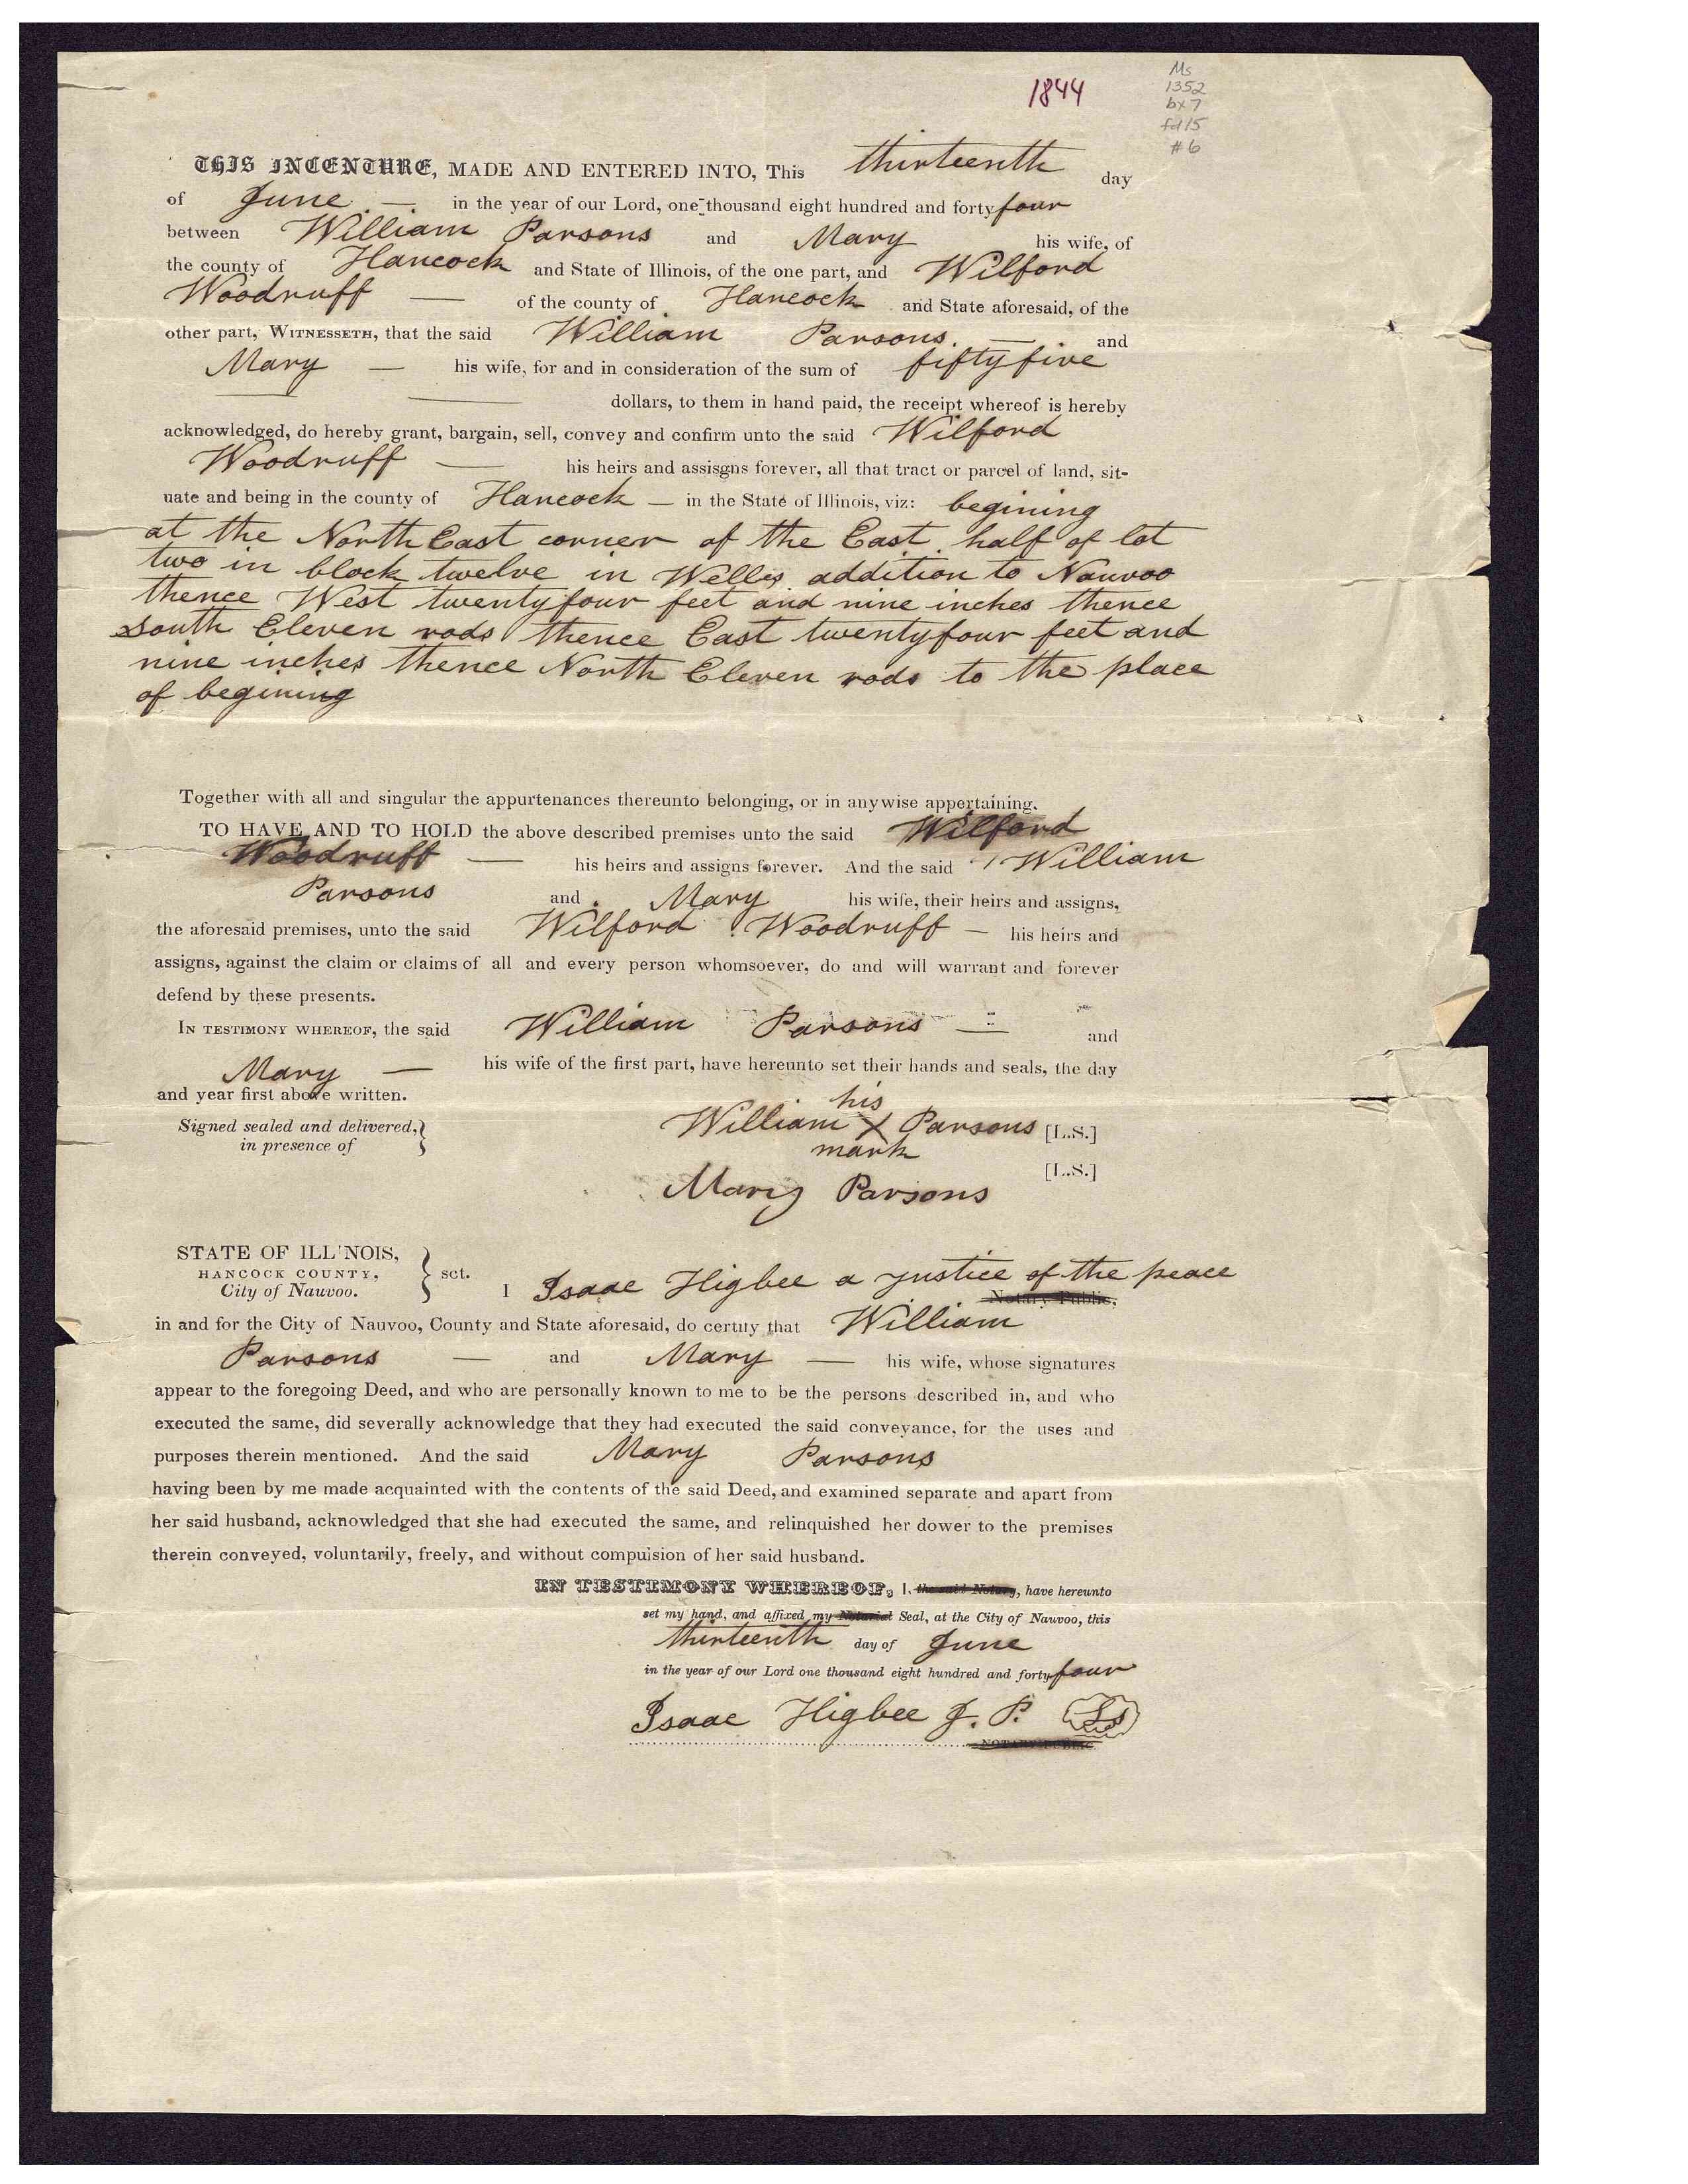 1844
Ms
1352
bx 7
fd 15
# 6
THIS INDENTURE, MADE AND ENTERED INTO, This thirteenth day
of June — in the year of our Lord, one thousand eight hundred and forty four
between William Parsons and Mary his wife, of
the county of Hancock and State of Illinois, of the one part, and Wilford
Woodruff — of the county of Hancock and State aforesaid, of the
other part, WITNESSETH, that the said William Parsons. — and
Mary — his wife, for and in consideration of the sum of fifty five
dollars, to them in hand paid, the receipt whereof is hereby
acknowledged, do hereby grant, bargain, sell, convey and confirm unto the said Wilford
Woodruff — his heirs and assisgns forever, all that tract or parcel of land, sit-
uate and being in the county of Hancock — in the State of Illinois, viz: begining
at the North East corner of the East half of lot
two in block twelve in Welles addition to Nauvoo
thence West twentyfour feet and nine inches thence
South Eleven rods thence East twentyfour feet and
nine inches thence North Eleven rods to the place
of begining
Together with all and singular the appurtenances thereunto belonging, or in anywise appertaining.
TO HAVE AND TO HOLD the above described premises unto the said Wilford
Woodruff — his heirs and assigns forever. And the said William
Parsons and Mary his wife, their heirs and assigns,
the aforesaid premises, unto the said Wilford Woodruff — his heirs and
assigns, against the claim or claims of all and every person whomsoever, do and will warrant and forever
defend by these presents.
IN TESTIMONY WHEREOF, the said William Parsons — and
Mary — his wife of the first part, have hereunto set their hands and seals, the day
and year first above written.
his
Signed sealed and delivered, William X Parsons [L.S.]
in presence of mark
[L.S.]
Mary Parsons
STATE OF ILL'NOIS,
HANCOCK COUNTY, sct.
City of Nauvoo. I Isaac Higbee a justice of the peace
Notary Public,
in and for the City of Nauvoo, County and State aforesaid, do certity that William
Parsons — and Mary — his wife, whose signatures
appear to the foregoing Deed, and who are personally known to me to be the persons described in, and who
executed the same, did severally acknowledge that they had executed the said conveyance, for the uses and
purposes therein mentioned. And the said Mary Parsons
having been by me made acquainted with the contents of the said Deed, and examined separate and apart from
her said husband, acknowledged that she had executed the same, and relinquished her dower to the premises
therein conveyed, voluntarily, freely, and without compulsion of her said husband.
IN TESTIMONY WHEREOF, I, the said Notary, have hereunto
set my hand, and affixed my Notarial Seal, at the City of Nauvoo, this
thirteenth day of June
in the year of our Lord one thousand eight hundred and forty four
Isaac Higbee J. P. LS
NOTARY PUBLIC